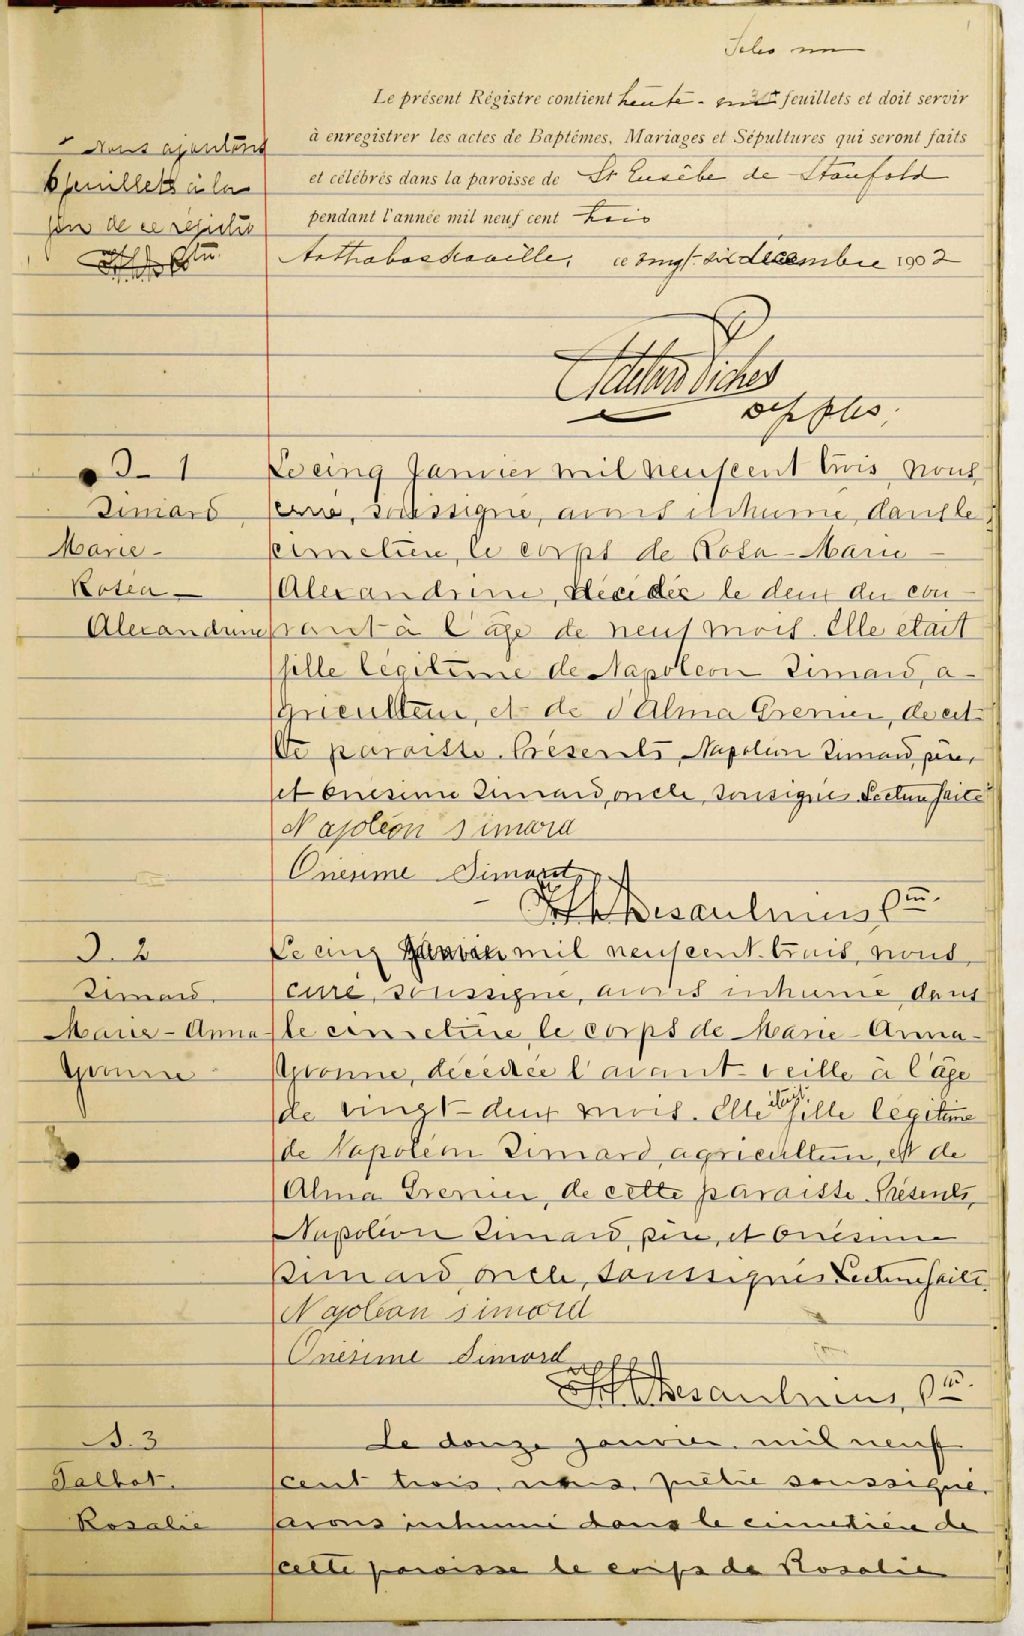 Folio un
Le présent Régistre contient trente-un feuillets et doit servir
à enregistrer les actes de Baptêmes, Mariages et Sépultures qui seront faits
et célébrés dans la paroisse de St Eusèbe de Stanfold
pendant l'année mil neuf cent trois
Arthabaskaville, ce vingt-six décembre 1902
Nous ajoutons
6 feuillets à la
fin de ce régistre
Ptre
Dep P C S
S- 1
Simard
Marie-
Roséa-
Alexandrine
Le cinq Janvier mil neuf cent trois, nous,
curé, soussigné, avons inhumé, dans le
cimetière, le corps de Rosa-Marie-
Alexandrine, décédée le deux du cou-
rant à l'âge de neuf mois. Elle était
fille légitime de Napoléon Simard, a-
griculteur, et de d'Alma Grenier, de cet-
te paroisse. Présents, Napoléon Simard, père,
et Onésime Simard, oncle, soussignés. Lecture faite
Napoléon Simard
Onésime Simard
Desaulniers, Ptre.
S. 2
Simard,
Marie-Anna-
Yvonne
Le cinq Janvier mil neuf cent trois, nous,
curé, soussigné, avons inhumé, dans
le cimetière, le corps de Marie-Anna-
Yvonne, décédée l'avant-veille à l'âge
de vingt-deux mois. Elle était fille légitime
de Napoléon Simard, agriculteur, et de
Alma Grenier, de cette paroisse. Présents,
Napoléon Simard, père, et Onésime
Simard, oncle, soussignés. Lecture faite.
Napoléon Simard
Onésime Simard
Desaulniers, Ptre.
S. 3
Talbot.
Rosalie
Le douze janvier mil neuf
cent trois, nous, prêtre soussigné,
avons inhumé dans le cimetière de
cette paroisse le corps de Rosalie